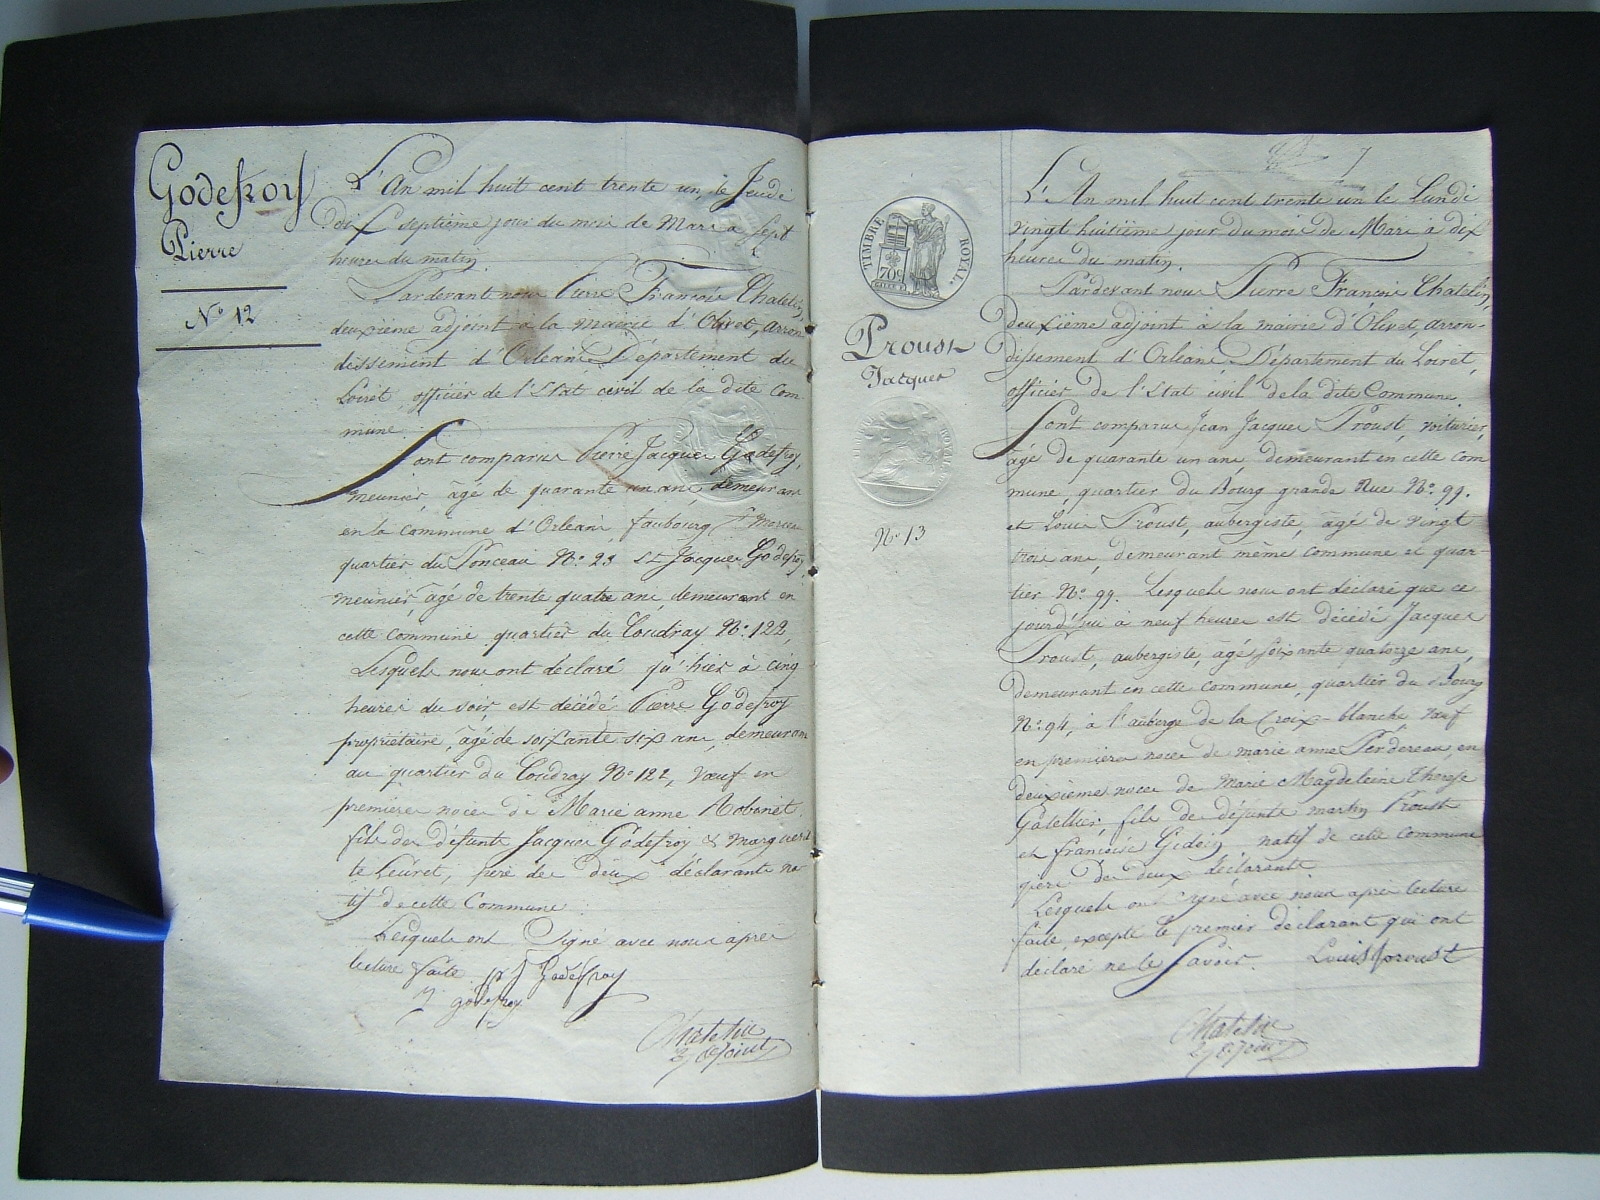 Godefroy
Pierre
N° 12
L'An mil huit cent trente un, le Jeudi
Dix septième jour du mois de Mars à sept
heures du matin.
Pardevant nous Pierre François Chatelin,
deuxième adjoint à la mairie d'Olivet, arron
dissement d'Orléans Département du
Loiret, officier de l'Etat civil de la dite Com
mune
Sont comparus Pierre Jacques Godefroy,
meunier, âgé de quarante un ans, demeurant
en la commune d'Orléans, faubourg St Marceau
quartier du Ponceau N° 23 et Jacques Godefroy
meunier, âgé de trente quatre ans, demeurant en
cette commune quartier du Coudray N° 122,
Lesquels nous ont déclaré qu'hier à cinq
heures du soir, est décédé Pierre Godefroy
propriétaire, âgé de soixante six ans, demeurant
au quartier du Coudray N° 122, veuf en
premières noces de Marie anne Robinet,
fils des défunts Jacques Godefroy & Margueri
te Leuret, père des deux déclarants na
tif de cette Commune.
Lesquels ont Signé avec nous après
lecture faite p J Godefroy
J godefroy
Chatelin
2e adjoint
7
TIMBRE ROYAL
70c
Proust
Jacques
N° 13
L'An mil huit cent trente un le Lundi
vingt huitième jour du mois de Mars à dix
heures du matin.
Pardevant nous Pierre François Chatelin,
deuxième adjoint à la mairie d'Olivet, arron-
dissement d'Orléans, Département du Loiret,
officier de l'Etat civil de la dite Commune.
Sont comparus Jean Jacques Proust, voiturier,
âgé de quarante un ans, demeurant en cette com
mune, quartier du Bourg grande Rue N° 99.
et Louis Proust, aubergiste, âgé de vingt
trois ans, demeurant même commune et quar-
tier N° 99. Lesquels nous ont déclaré que ce
jourd'hui à neuf heures est décédé Jacques
Proust, aubergiste, âgé soixante quatorze ans,
demeurant en cette commune, quartier du Bourg
N° 94, à l'auberge de la Croix-blanche, veuf
en premières noces de marie anne Perdereau, en
deuxièmes noces de Marie Magdeleine Therese
Gatellier, fils de défunts martin Proust
et françoise Gidoin, natif de cette commune
père des deux déclarants.
Lesquels ont signé avec nous après lecture
faite, excepté le premier déclarant qui ont
déclaré ne le Savoir. Louis proust
Chatelin
2e adjoint